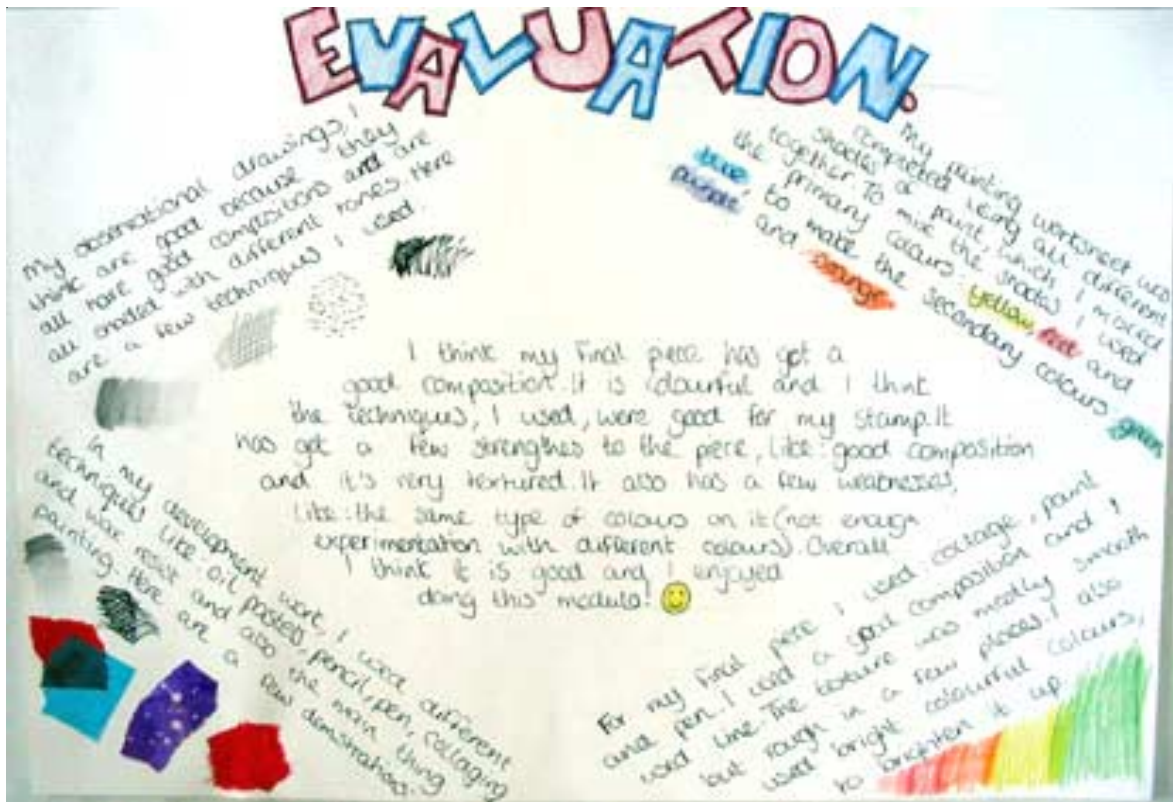 EVALUATION.
My observational drawings, I
think are good because they
all have good compositions and are
all shaded with different tones. Here
are a few techniques I used.
My painting worksheet was
completed using all different
shades of paint, which I mixed
together. To mix the shades I used
the primary colours: yellow, red and
blue, to make the secondary colours, green
purple and orange.
I think my final piece has got a
good composition. It is colourful and I think
the techniques, I used, were good for my stamp. It
has got a few strengthes to the piece, like: good composition
and it's very textured. It also has a few weaknesses,
like: the same type of colours on it (not enough
experimentation with different colours). Overall
I think it is good and I enjoyed
doing this module!
In my development work, I used different
techniques like: oil pastels, pencil, pen, collaging
and wax resist and also the main thing
painting. Here are a few demonstrations.
For my final piece I used: collage, paint
and pen. I used a good composition and I
used line. The texture was mostly smooth
but rough in a few places. I also
used bright colourful colours,
to brighten it up